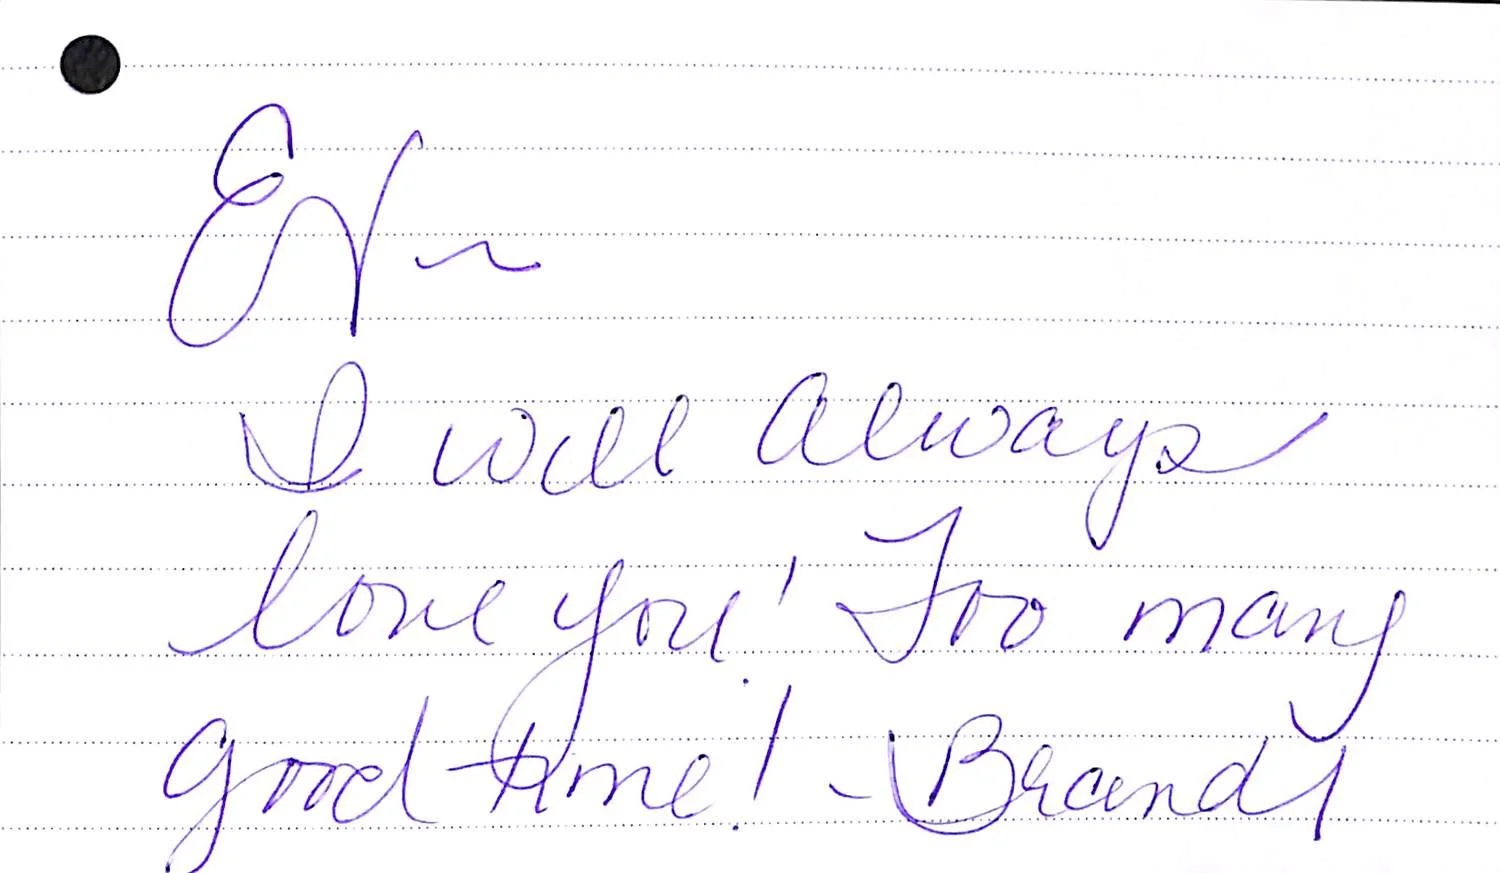 I will always
love you! Too many
good time! - Brandy